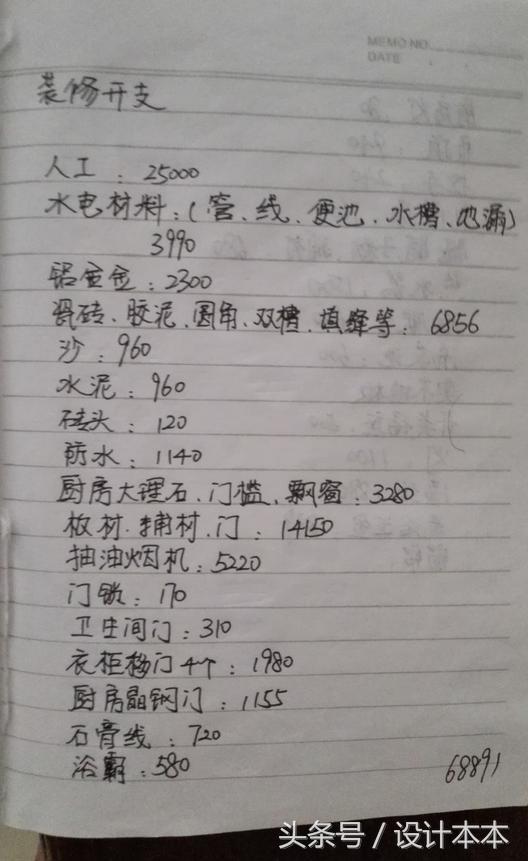 MEMO NO.
DATE
装修开支
人工：25000
水电材料：(管、线、便池、水槽、地漏)
3990
铝宝金：2300
瓷砖、胶泥、圆角、双槽、填缝等：6856
沙：960
水泥：960
砖头：120
防水：1140
厨房大理石、门槛、飘窗：3280
板材、辅材、门：14150
抽油烟机：5220
门锁：170
卫生间门：310
衣柜移门4个：1980
厨房晶钢门：1155
石膏线：720
浴霸：580
68891
头条号 / 设计本本